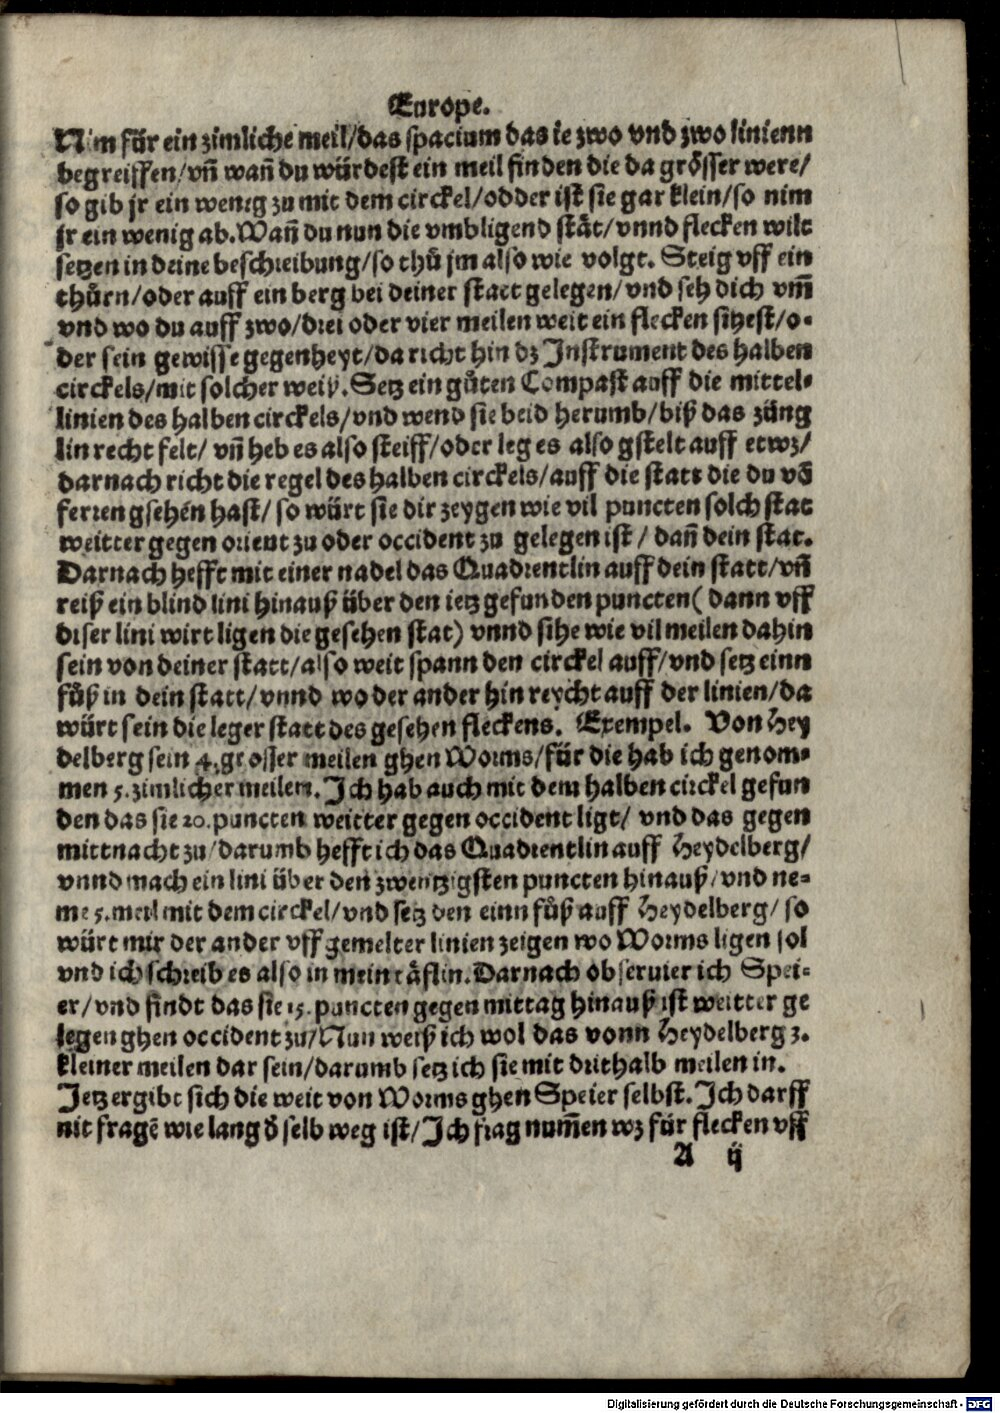 Europe.
Nim für ein zimliche meil/das spacium das ie zwo vnd zwo linienn
begreiffen/vñ wañ du würdest ein meil finden die da grösser were/
so gib jr ein wenig zu mit dem circkel/odder ist sie gar klein/so nim
jr ein wenig ab.Wañ du nun die vmbligend stät/vnnd flecken wilt
setzen in deine beschreibung/so thů jm also wie volgt. Steig vff ein
thůrn/oder auff ein berg bei deiner statt gelegen/vnd seh dich vm̃
vnd wo du auff zwo/drei oder vier meilen weit ein flecken sihest/o⸗
der sein gewisse gegenheyt/da richt hin dz Instrument des halben
circkels/mit solcher weiß. Setz ein gůten Compast auff die mittel⸗
linien des halben circkels/vnd wend sie beid herumb/biß das züng
lin recht felt/ vñ heb es also steiff/oder leg es also gstelt auff etwz/
darnach richt die regel des halben circkels/auff die statt die du võ
ferren gsehen hast/ so würt sie dir zeygen wie vil puncten solch stat
weitter gegen orient zu oder occident zu gelegen ist / dañ dein stat.
Darnach hefft mit einer nadel das Quadrentlin auff dein statt/vñ
reiß ein blind lini hinauß über den ietz gefunden puncten( dann vff
diser lini wirt ligen die gesehen stat) vnnd sihe wie vil meilen dahin
sein von deiner statt/also weit spann den circkel auff/vnd setz einn
fůß in dein statt/vnnd wo der ander hin reycht auff der linien/da
würt sein die leger statt des gesehen fleckens. Exempel. Von Hey
delberg sein 4.grosser meilen ghen Worms/für die hab ich genom⸗
men 5.zimlicher meilen. Ich hab auch mit dem halben circkel gefun
den das sie 20.puncten weitter gegen occident ligt/ vnd das gegen
mittnacht zu/darumb hefft ich das Quadrentlin auff Heydelberg/
vnnd mach ein lini über den zwentzigsten puncten hinauß/vnd ne⸗
me 5.meil mit dem circkel/vnd setz den einn fůß auff Heydelberg/ so
würt mir der ander vff gemelter linien zeigen wo Worms ligen sol
vnd ich schreib es also in mein täflin.Darnach obseruier ich Spei⸗
er/vnd findt das sie 15.puncten gegen mittag hinauß ist weitter ge
legen ghen occident zu/Nun weiß ich wol das vonn Heydelberg 3.
kleiner meilen dar sein/darumb setz ich sie mit drithalb meilen in.
Jetz ergibt sich die weit von Worms ghen Speier selbst.Ich darff
nit fragẽ wie lang d̕ selb weg ist/Ich frag num̃en wz für flecken vff
A ij
Digitalisierung gefördert durch die Deutsche Forschungsgemeinschaft - DFG